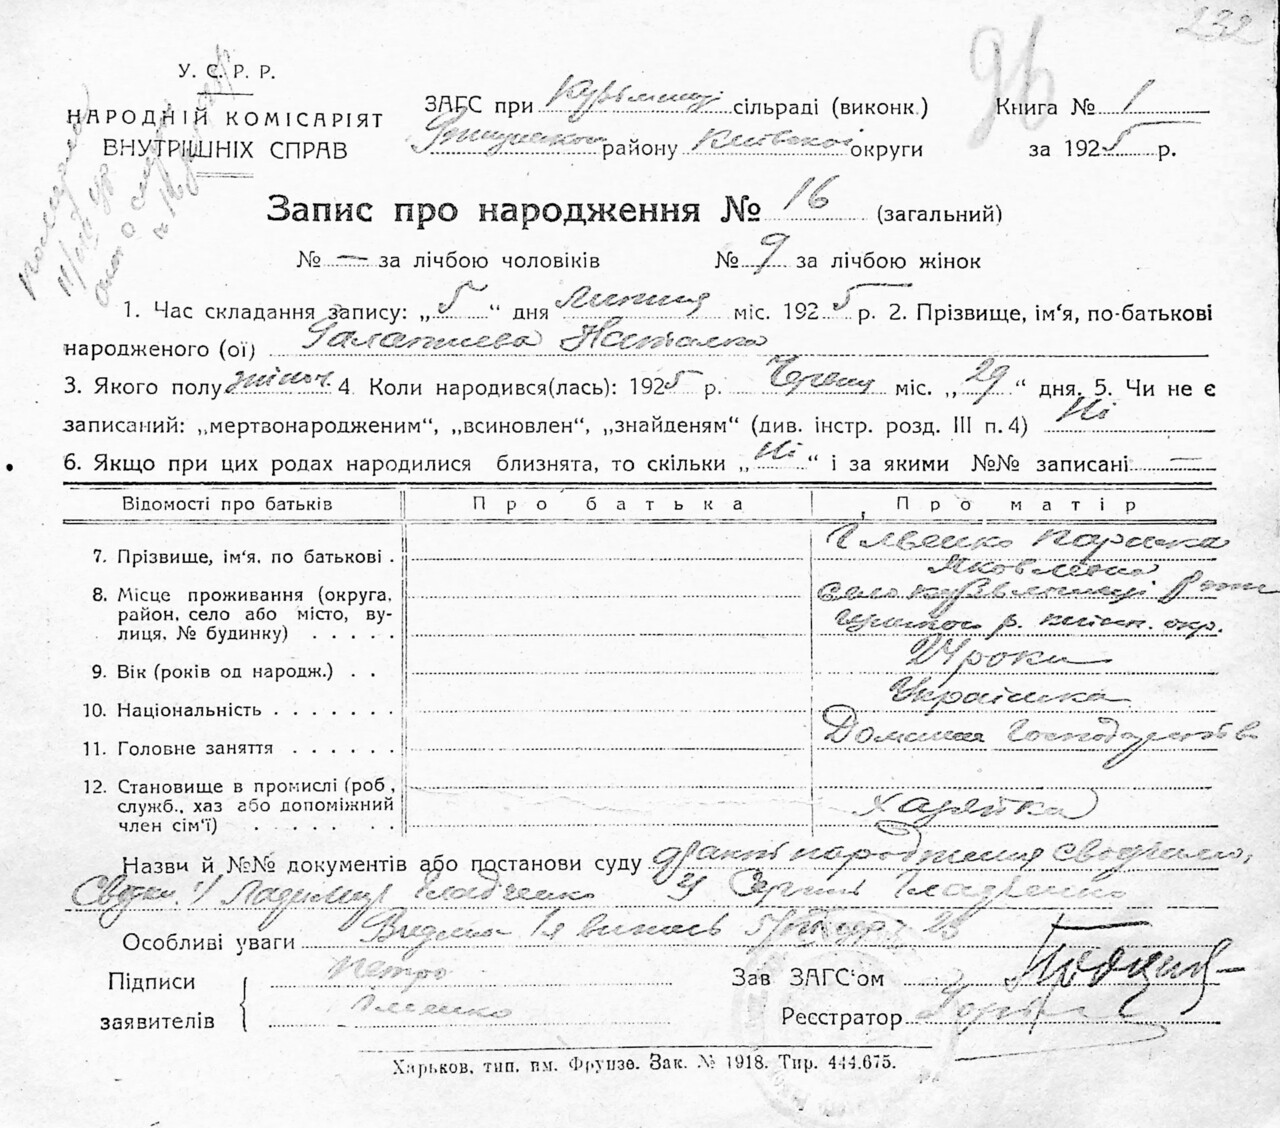 232
96
У. С. Р. Р.
НАРОДНІЙ КОМІСАРІЯТ
ВНУТРІШНІХ СПРАВ
ЗАГС при сільраді (виконк.)
району Київської округи
Книга № 1
за 1925 р.
Запис про народження № 16 (загальний)
№ — за лічбою чоловіків № 9 за лічбою жінок
1. Час складання запису: „5“ дня Липня міс. 1925 р. 2. Прізвище, ім‘я, по-батькові
народженого (ої) Наталка
3. Якого полу жіноч. 4. Коли народився(лась): 1925 р. Червня міс. „29“ дня. 5. Чи не є
записаний: „мертвонародженим“, „всиновлен“, „знайденям“ (див. інстр. розд. III п. 4) Ні
6. Якщо при цих родах народилися близнята, то скільки „Ні“ і за якими №№ записані: —
Відомості про батьків Про батька Про матір
7. Прізвище, ім‘я, по батькові . Ільенко
Яковлевна
8. Місце проживання (округа, село
район, село або місто, ву-
лиця, № будинку) . . . . . р. київ. окр.
9. Вік (років од народж.) . . 24 роки
10. Національність . . . . . . . Українка
11. Головне заняття . . . . . . Домашнє Господарство
12. Становище в промислі (роб.,
служб., хаз або допоміжний хазяйка
член сім‘ї) . . . . . . .
Назви й №№ документів або постанови суду факт народження
Свідки: 1/ Гладченко 2/ Сергій Гладченко
Особливі уваги 25
Підписи Петро
заявителів Ільенко
Зав ЗАГС‘ом
Реєстратор
Харьков, тип. им. Фрунзе. Зак. № 1918. Тир. 444.675.